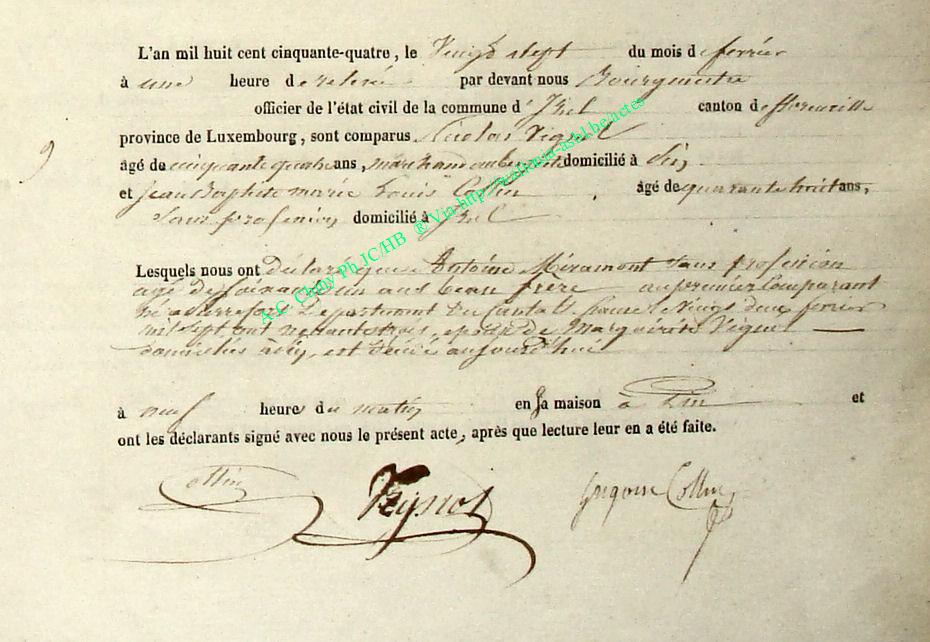 L'an mil huit cent cinquante-quatre, le Vingt sept du mois de fevrier
à une heure de relevée par devant nous Bourgmestre
officier de l'état civil de la commune d'Izel canton de florenville
province de Luxembourg, sont comparus Nicolas Vignol
9
âgé de cinquante quatre ans, marchand domicilié à
et Jean Baptiste marie Louis Collin âgé de quarante huit ans,
Sans profession domicilié à Izel
Lesquels nous ont déclaré que Antoine Miramont Sans profession
agé de Soixante un ans beau frère au premier Comparant
né à Département du Cantal, france le Vingt deux fevrier
mil Sept Cent nonante trois, époux de Marguerite Vignol
domicilié à, est décédé aujourd'hui
à neuf heures du matin en Sa maison à et
ont les déclarants signé avec nous le présent acte, après que lecture leur en a été faite.
Collin Vignol Grégoire Collin
A.C. Chiny Ph JC/HB ® Via http://wallonia-asbl.be/actes